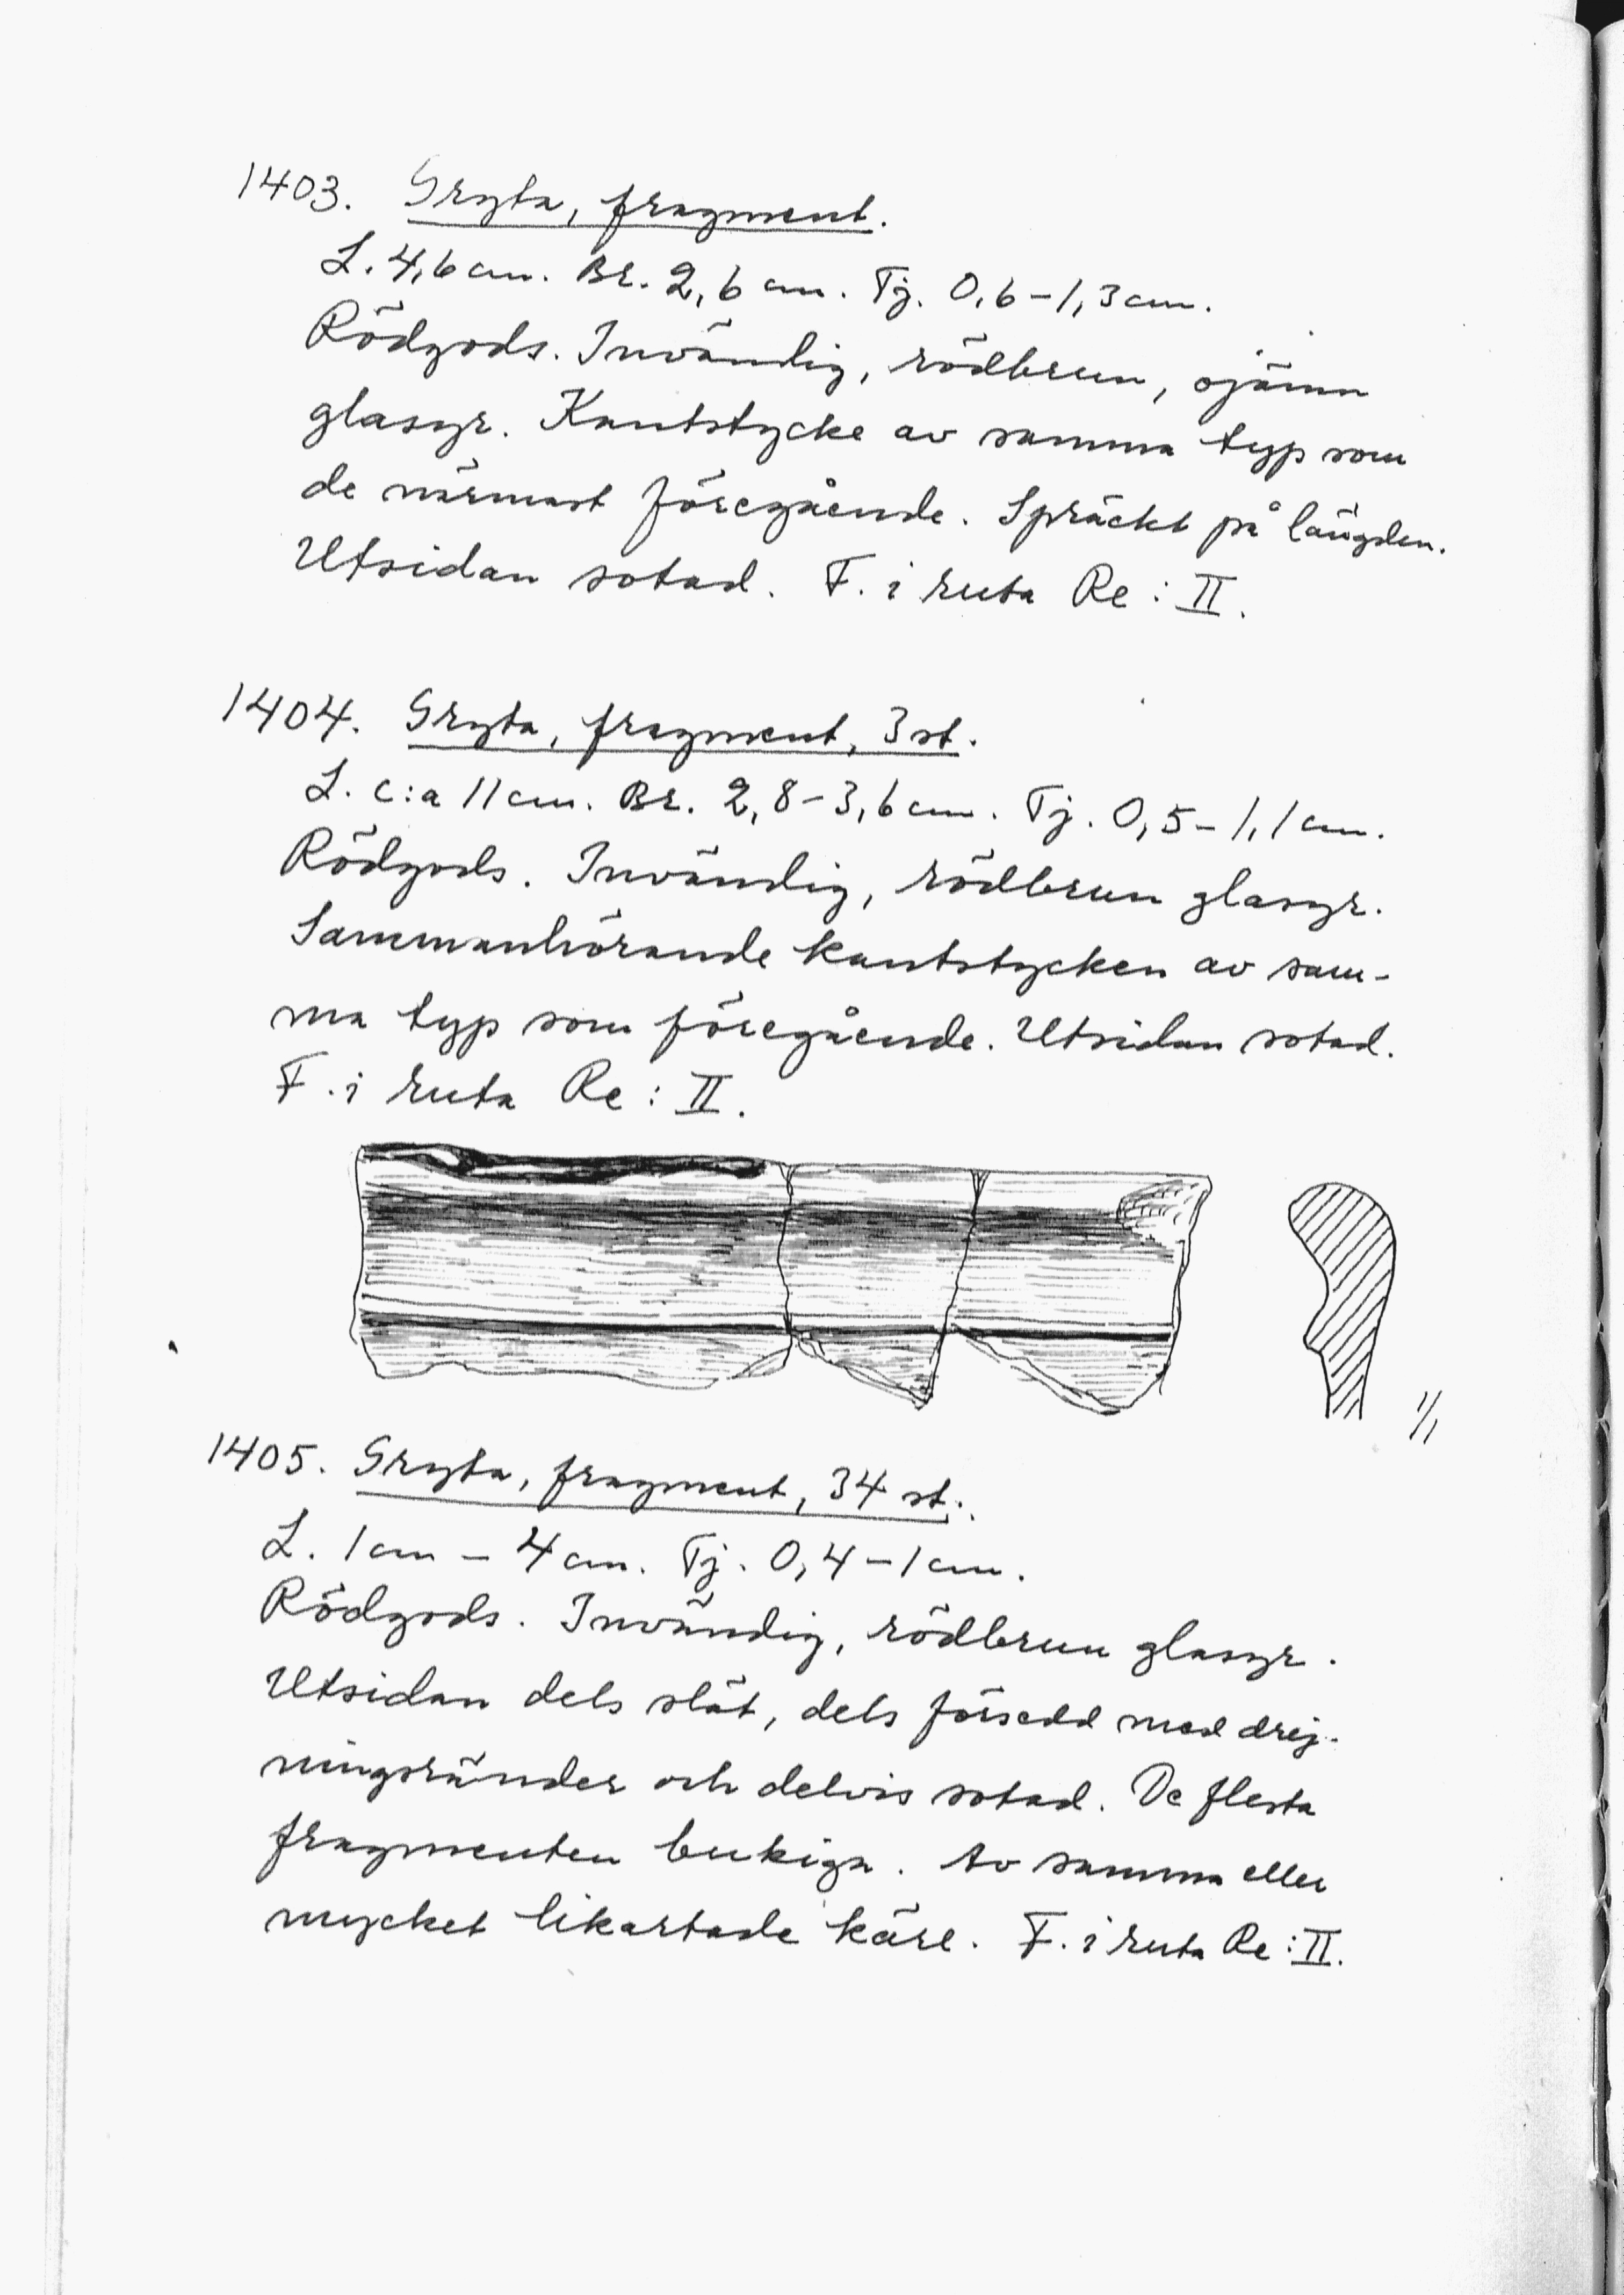 1403. Gryta, fragment.
L. 4,6 cm. Br. 2,6 cm. Tj. 0,6-1,3 cm.
Rödgods. Invändig, rödbrun, ojämn
glasyr. Kantstycke av samma typ som
de närmast föregående. Spräckt på längden.
Utsidan sotad. F. i ruta Re: II.
1404. Gryta, fragment, 3 st.
L. c:a 11 cm. Br. 2,8-3,6 cm. Tj. 0,5-1,1 cm.
Rödgods. Invändig, rödbrun glasyr.
Sammanhörande kantstycken av sam-
ma typ som föregående. Utsidan sotad.
F. i ruta Re: II.
1/1
1405. Gryta, fragment, 34 st.
L. 1 cm - 4 cm. Tj. 0,4-1 cm.
Rödgods. Invändig, rödbrun glasyr.
Utsidan dels slät, dels försedd med drej-
ningsränder och delvis sotad. De flesta
fragmenten bukiga. Av samma eller
mycket likartade kärl. F. i ruta Re: II.